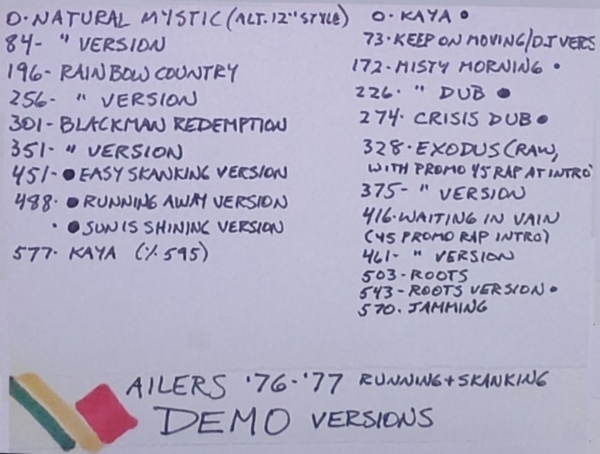 0· NATURAL MYSTIC (ALT. 12" STYLE)
84- " VERSION
196- RAINBOW COUNTRY
256- " VERSION
301- BLACKMAN REDEMPTION
351- " VERSION
451- ● EASY SKANKING VERSION
488· ● RUNNING AWAY VERSION
· ● SUN IS SHINING VERSION
577· KAYA (½ 595)
0· KAYA ●
73· KEEP ON MOVING/DJ VERS
172· MISTY MORNING ●
226· " DUB ●
274· CRISIS DUB ●
328· EXODUS (RAW,
WITH PROMO 45 RAP AT INTRO)
375- " VERSION
416· WAITING IN VAIN
(45 PROMO RAP INTRO)
461- " VERSION
503- ROOTS
543- ROOTS VERSION ●
570· JAMMING
AILERS '76-'77 RUNNING + SKANKING
DEMO VERSIONS